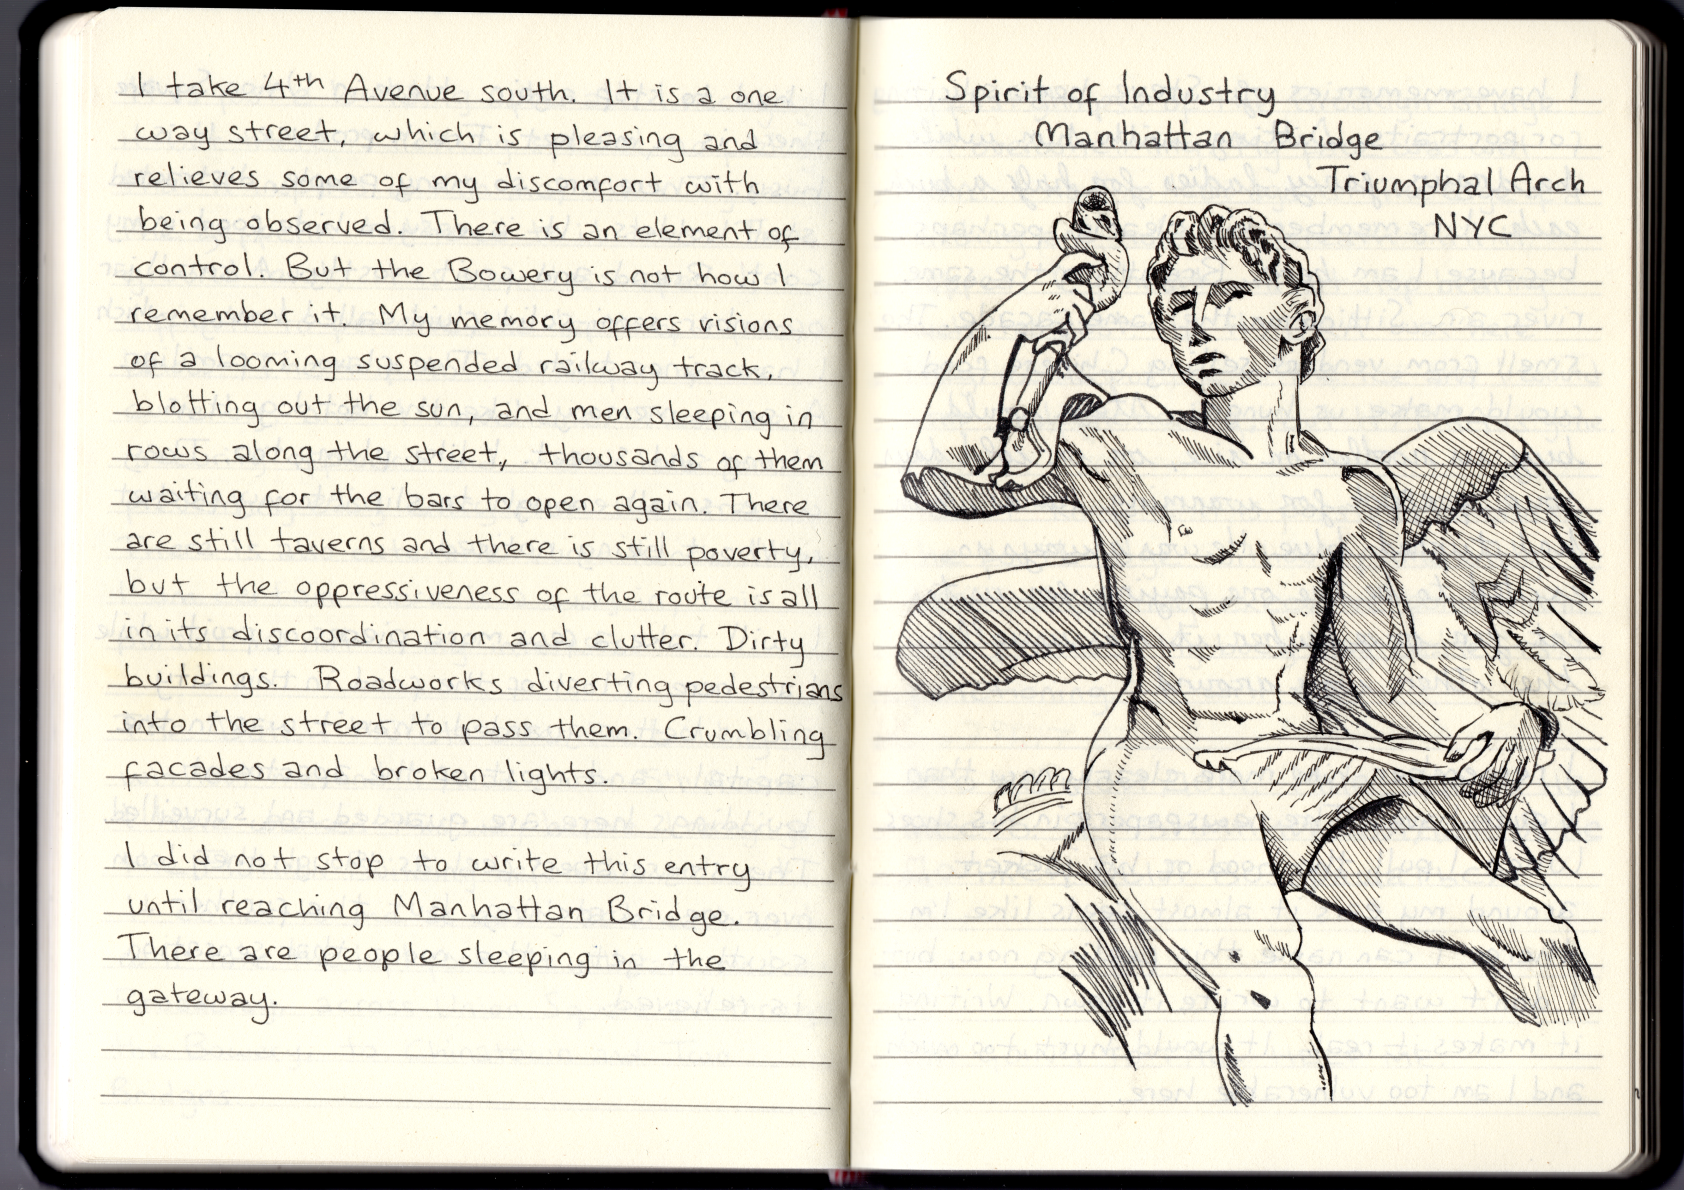 I take 4th Avenue south. It is a one
way street, which is pleasing and
relieves some of my discomfort with
being observed. There is an element of
control. But the Bowery is not how I
remember it. My memory offers visions
of a looming suspended railway track,
blotting out the sun, and men sleeping in
rows along the street, thousands of them
waiting for the bars to open again. There
are still taverns and there is still poverty,
but the oppressiveness of the route is all
in its discoordination and clutter. Dirty
buildings. Roadworks diverting pedestrians
into the street to pass them. Crumbling
facades and broken lights.
I did not stop to write this entry
until reaching Manhattan Bridge.
There are people sleeping in the
gateway.
Spirit of Industry
Manhattan Bridge
Triumphal Arch
NYC